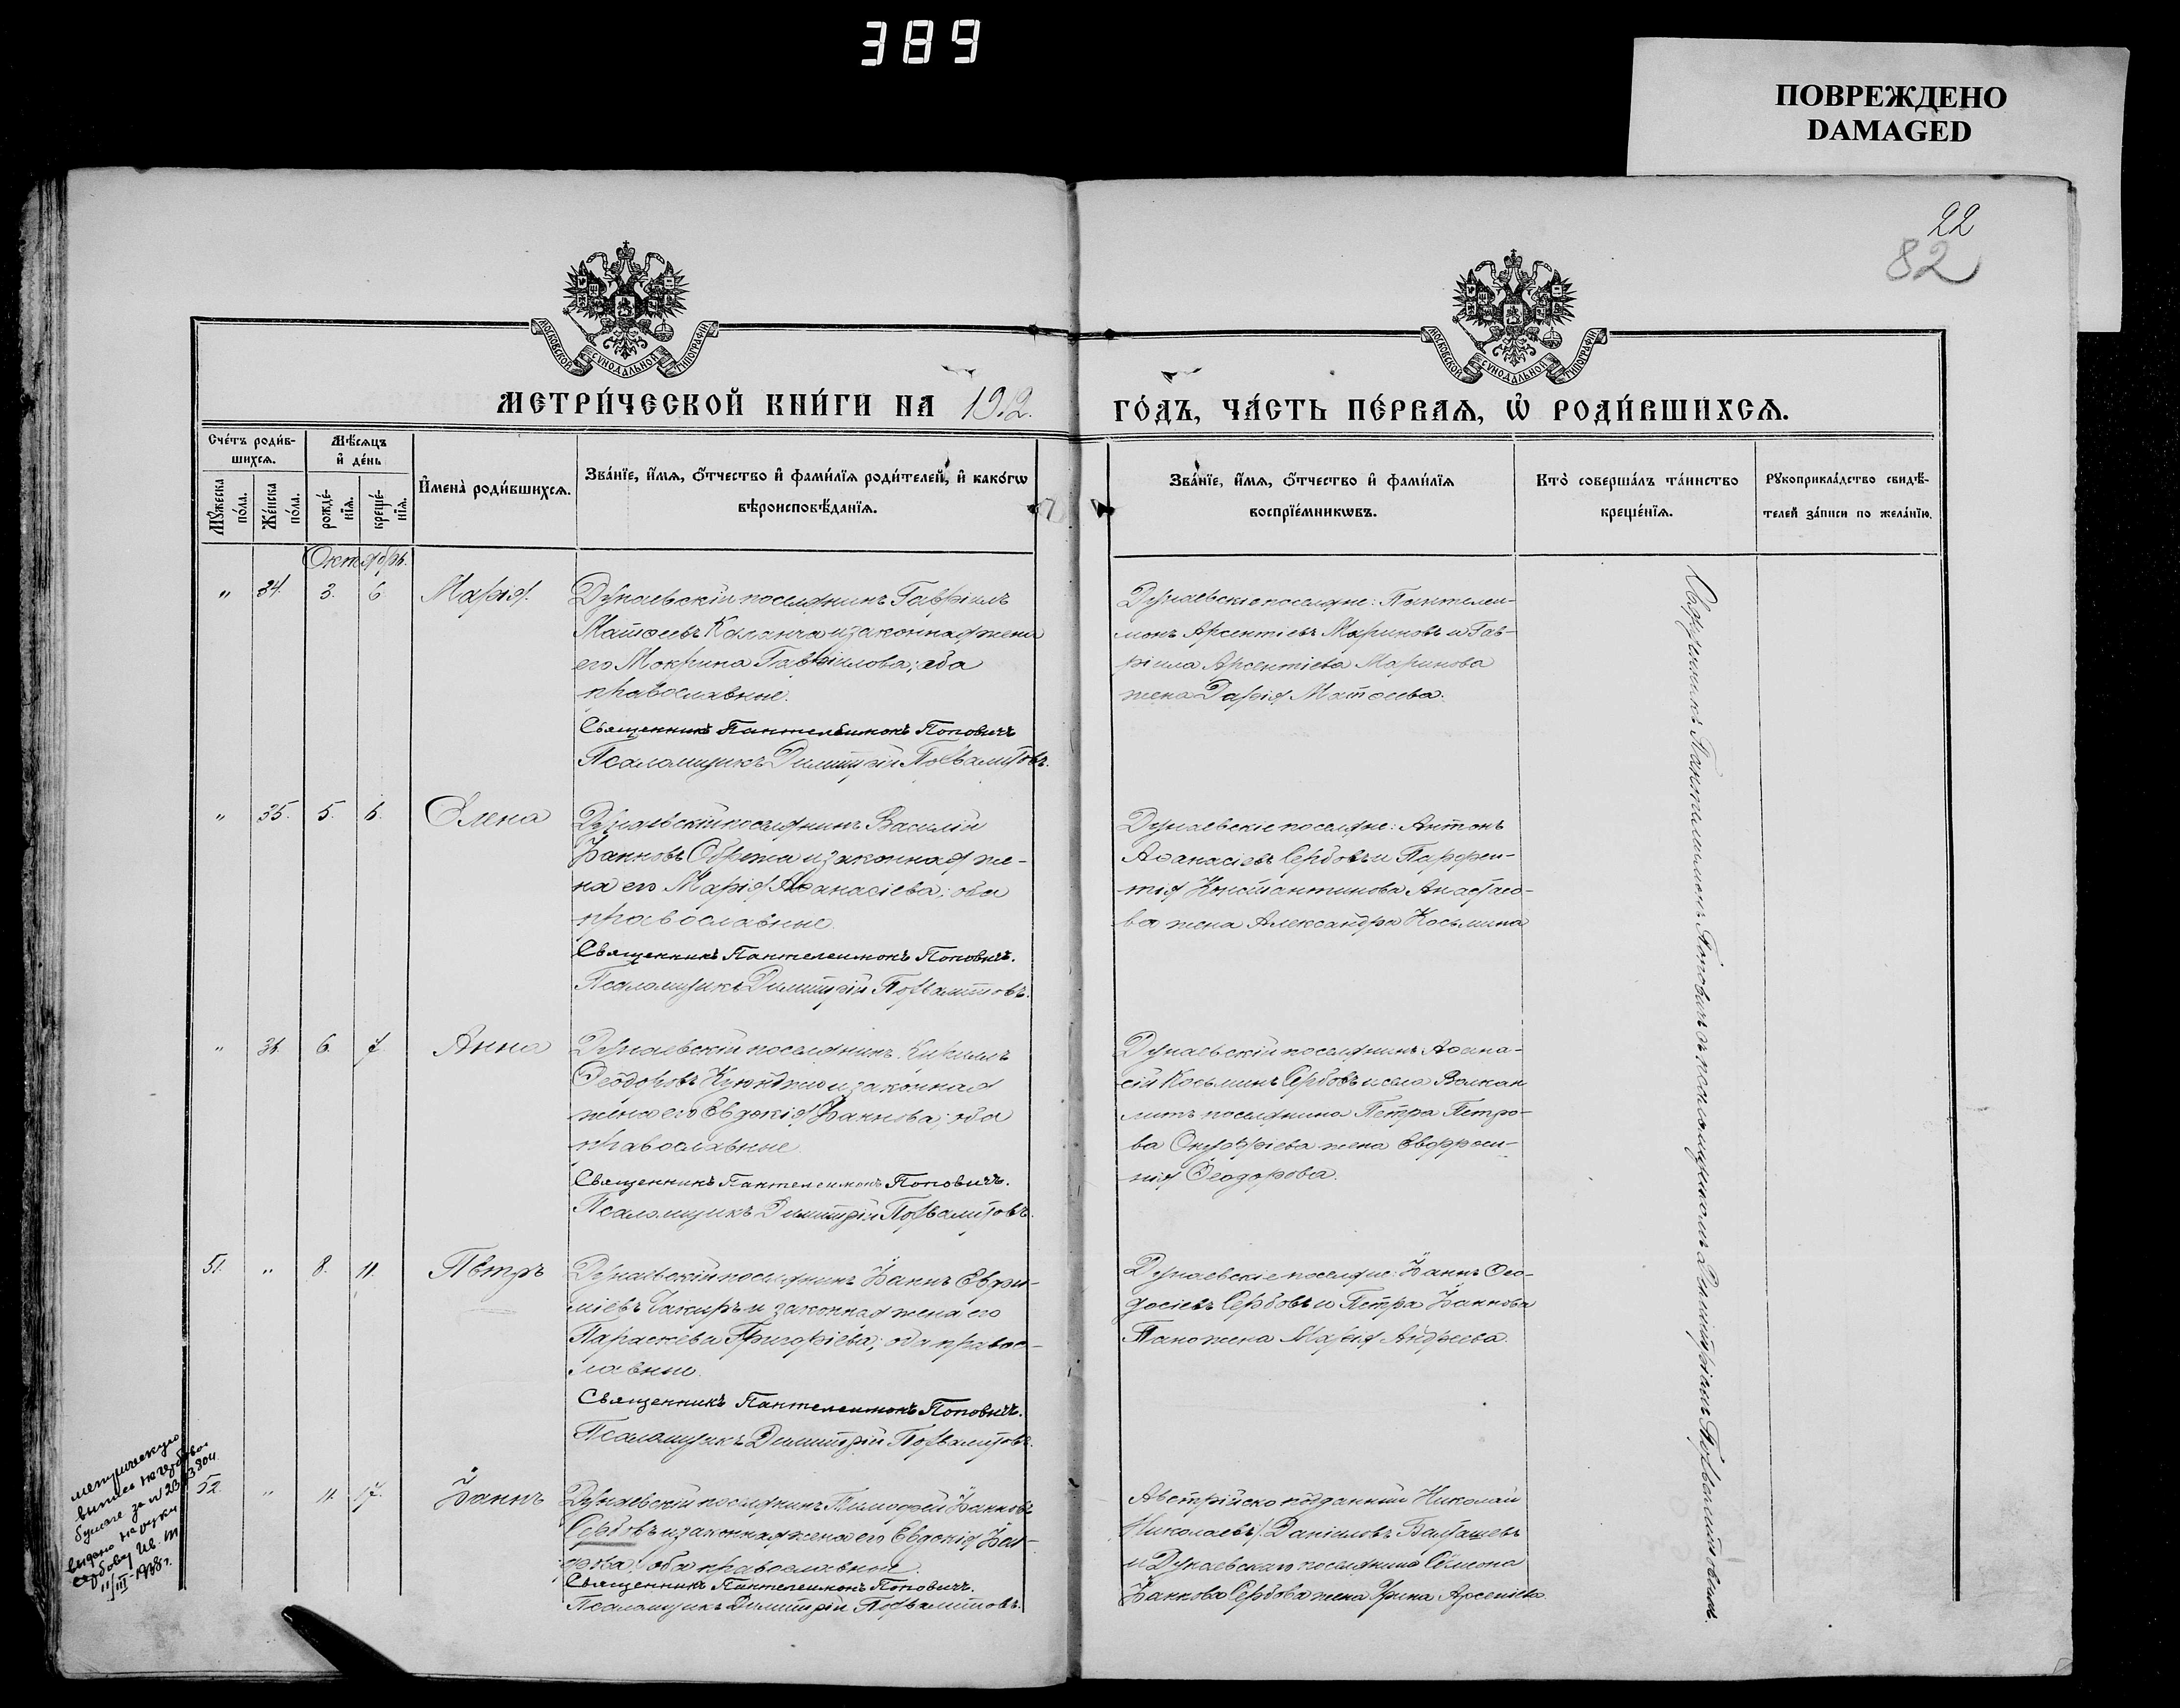 389
ПОВРЕЖДЕНО
DAMAGED
22
82
МОСКОВСКОЙ СѴНОДАЛЬНОЙ ТИПОГРАФІИ
МОСКОВСКОЙ СѴНОДАЛЬНОЙ ТИПОГРАФІИ
МЕТРИ́ЧЕСКОЙ КНИ́ГИ НА 1912.
ГО́ДЪ, ЧА́СТЬ ПЕ́РВАЯ, Ѡ РОДИ́ВШИХСЯ.
Сче́тъ роди́в-
шихсѧ.
Мѣ́сѧцъ
и де́нь
Мꙋ́жеска
по́ла.
Же́нска
по́ла.
рожде́-
нїѧ.
креще́-
нїѧ.
Имена̀ роди́вшихсѧ.
Зва́нїе, и́мѧ, ѻ́тчество и фами́лїѧ роди́телей, и како́гѡ
вѣроисповѣ́данїѧ.
Зва́нїе, и́мѧ, ѻ́тчество и фами́лїѧ
воспрїе́мникѡвъ.
Кто̀ соверша́лъ та́инство
креще́нїѧ.
Рꙋкоприкла́дство свидѣ́-
телей за́писи по жела́нїю.
Октябрь.
" 34. 3. 6. Марія.
Дунаевскій поселянинъ Гавріилъ
Матѳеевъ Каланча и законная жена
его Мокрина Гавріилова; оба
православные.
Священникъ Пантелеимонъ Поповичъ
Псаломщикъ Димитрій
Дунаевскіе поселяне: Пантелеи-
монъ Арсентіевъ Мариновъ и Гав-
ріила Арсентіева Маринова
жена Дарія Матѳеева.
" 35. 5. 6. Елена
Дунаевскій поселянинъ Василій
Іоанновъ и законная же-
на его Марія Аѳанасіева; оба
православные.
Священникъ Пантелеимонъ Поповичъ.
Псаломщикъ Димитрій
Дунаевскіе поселяне: Антонъ
Аѳанасіевъ Сербовъ и Парфен-
тія Константинова Анастасо-
ва жена Александра Косьмина
" 36. 6. 7. Анна
Дунаевскій поселянинъ Кириллъ
Ѳеодоровъ и законная
жена его Евдокія Іоаннова; оба
православные.
Священникъ Пантелеимонъ Поповичъ.
Псаломщикъ Димитрій
Дунаевскій поселянинъ Аѳана-
сій Косьминъ Сербовъ и села Волкан
поселянина Петра Петро-
ва Онуфріева жена Евфроси-
нія Ѳеодорова.
51. " 8. 11. Петръ
Дунаевскій поселянинъ Іоаннъ Евфи-
міевъ Чакиръ и законная жена его
Параскева Григоріева; оба правос-
лавные.
Священникъ Пантелеимонъ Поповичъ.
Псаломщикъ Димитрій
Дунаевскіе поселяне: Іоаннъ Ѳео-
досіевъ Сербовъ и Петра Іоаннова
жена Марія Андреева.
52. " 11. 17. Іоаннъ
Дунаевскій поселянинъ Тимоѳей Іоанновъ
Сербовъ и законная жена его Евдокія
оба православные.
Священникъ Пантелеимонъ Поповичъ.
Псаломщикъ Димитрій
Австрійско подданный Николай
Николаевъ Даніиловъ
и Дунаевскаго поселянина Сѵмеона
Іоаннова Сербова жена Ирина Арсеніева.
Священникъ Пантелеимонъ Поповичъ съ псаломщикомъ Димитріемъ
метрическую
выпись на гербовой
бумаге за №
выдано на руки
Сербову Ив. Т.
11/III-1938 г.